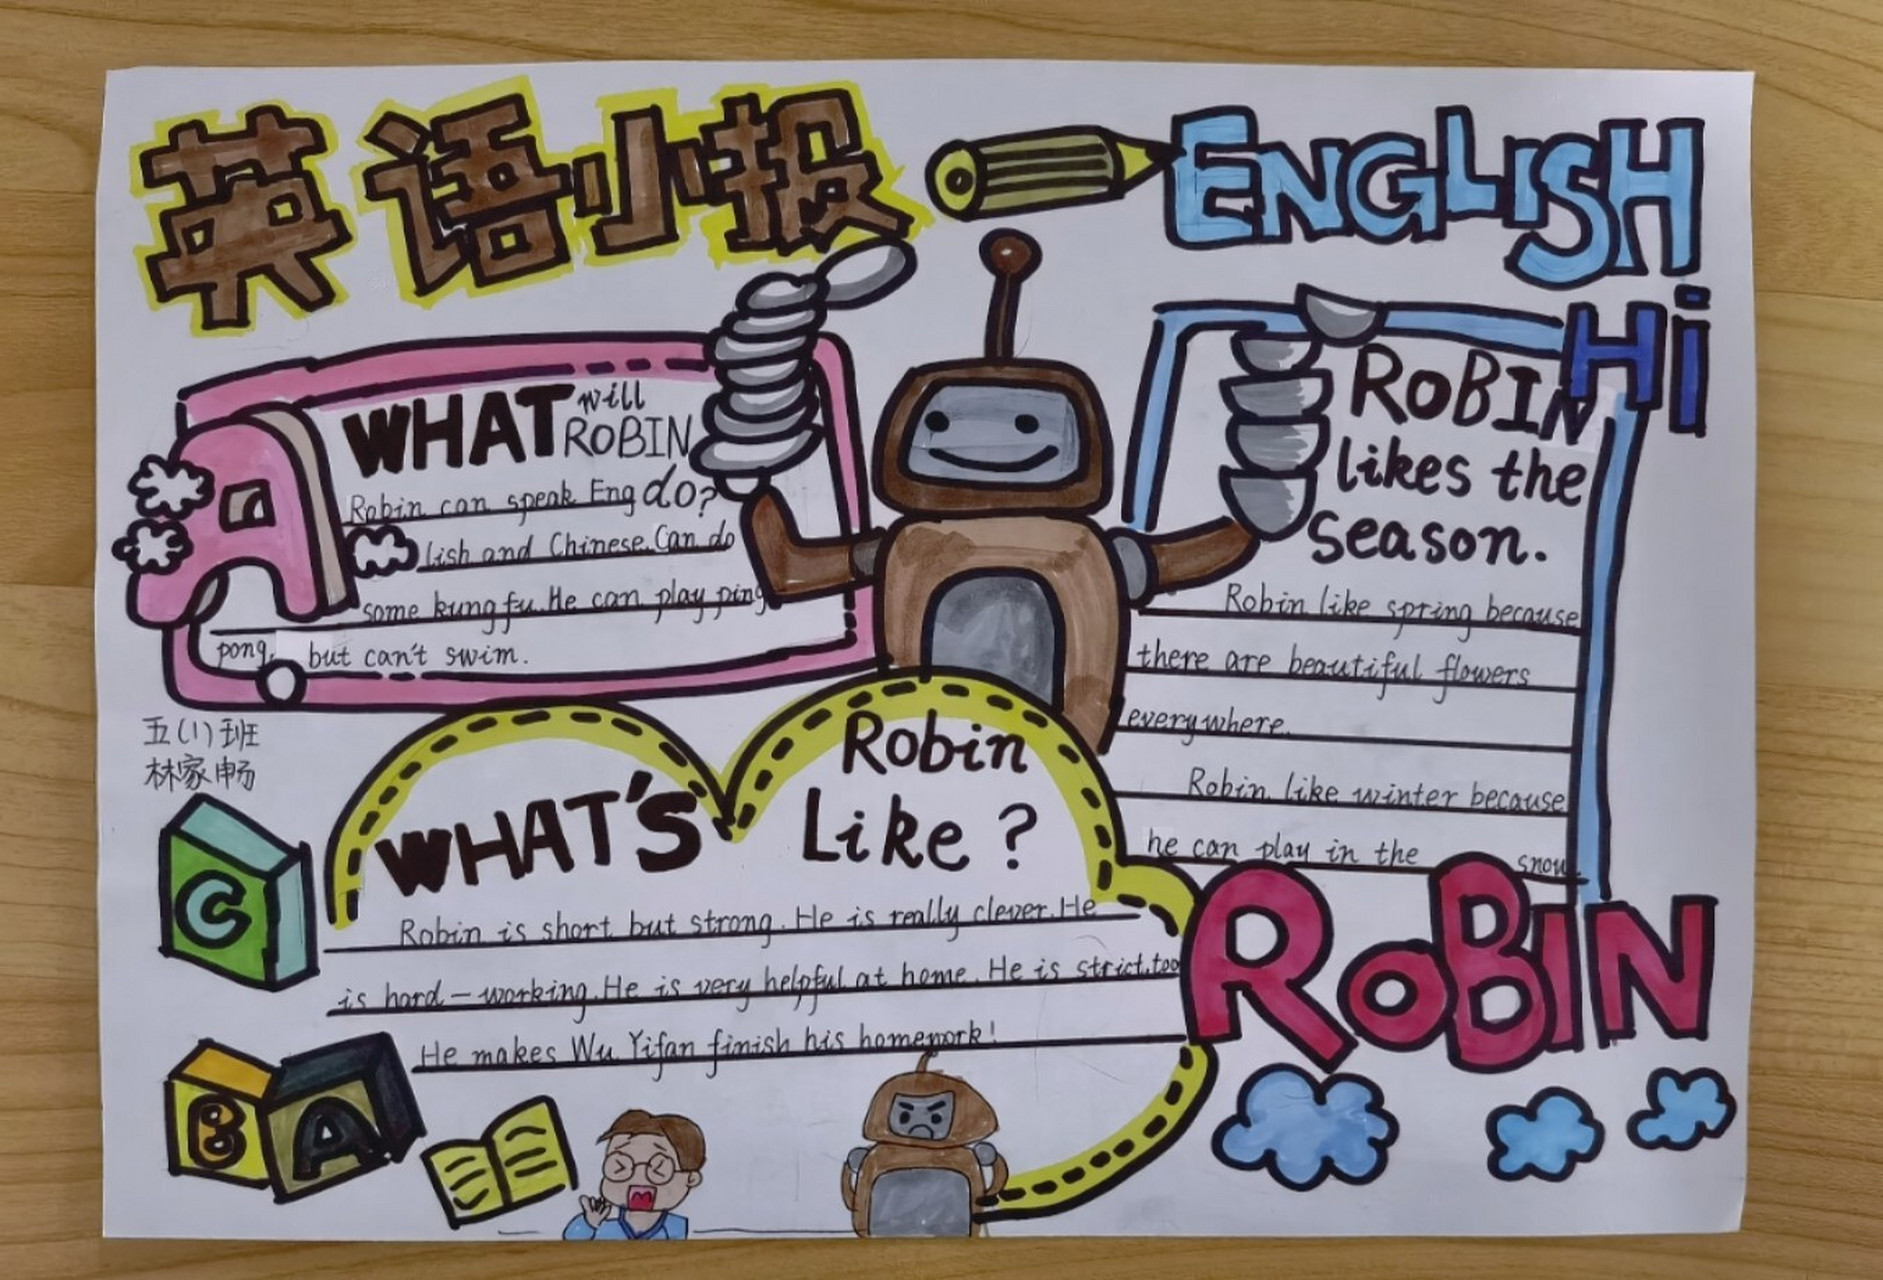 英语小报
ENGLISH
Hi
WHAT will
ROBIN
do?
Robin can speak Eng
lish and Chinese.Can do
some kung fu.He can play ping
pong, but can't swim.
ROBIN
likes the
season.
Robin like spring because
there are beautiful flowers
everywhere.
Robin like winter because
he can play in the snow
五(1)班
林家畅
WHAT'S Robin
Like?
Robin is short but strong. He is really clever.He
is hard-working.He is very helpful at home. He is strict,too
He makes Wu Yifan finish his homework!
ROBIN
C
B A